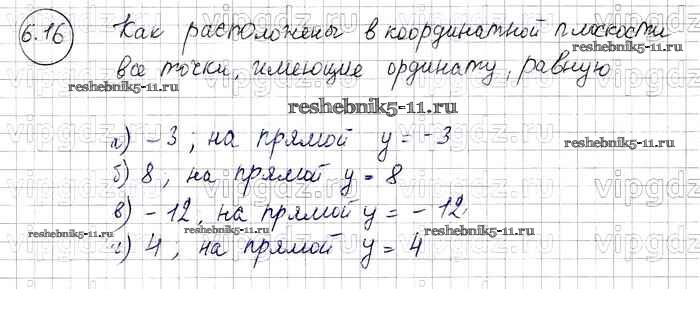 6.16 Как расположены в координатной плоскости
все точки, имеющие ординату, равную
reshebnik5-11.ru
reshebnik5-11.ru
reshebnik5-11.ru
а) -3; на прямой y = -3
reshebnik5-11.ru
б) 8, на прямой y = 8
в) -12, на прямой y = -12
reshebnik5-11.ru
reshebnik5-11.ru
г) 4; на прямой y = 4